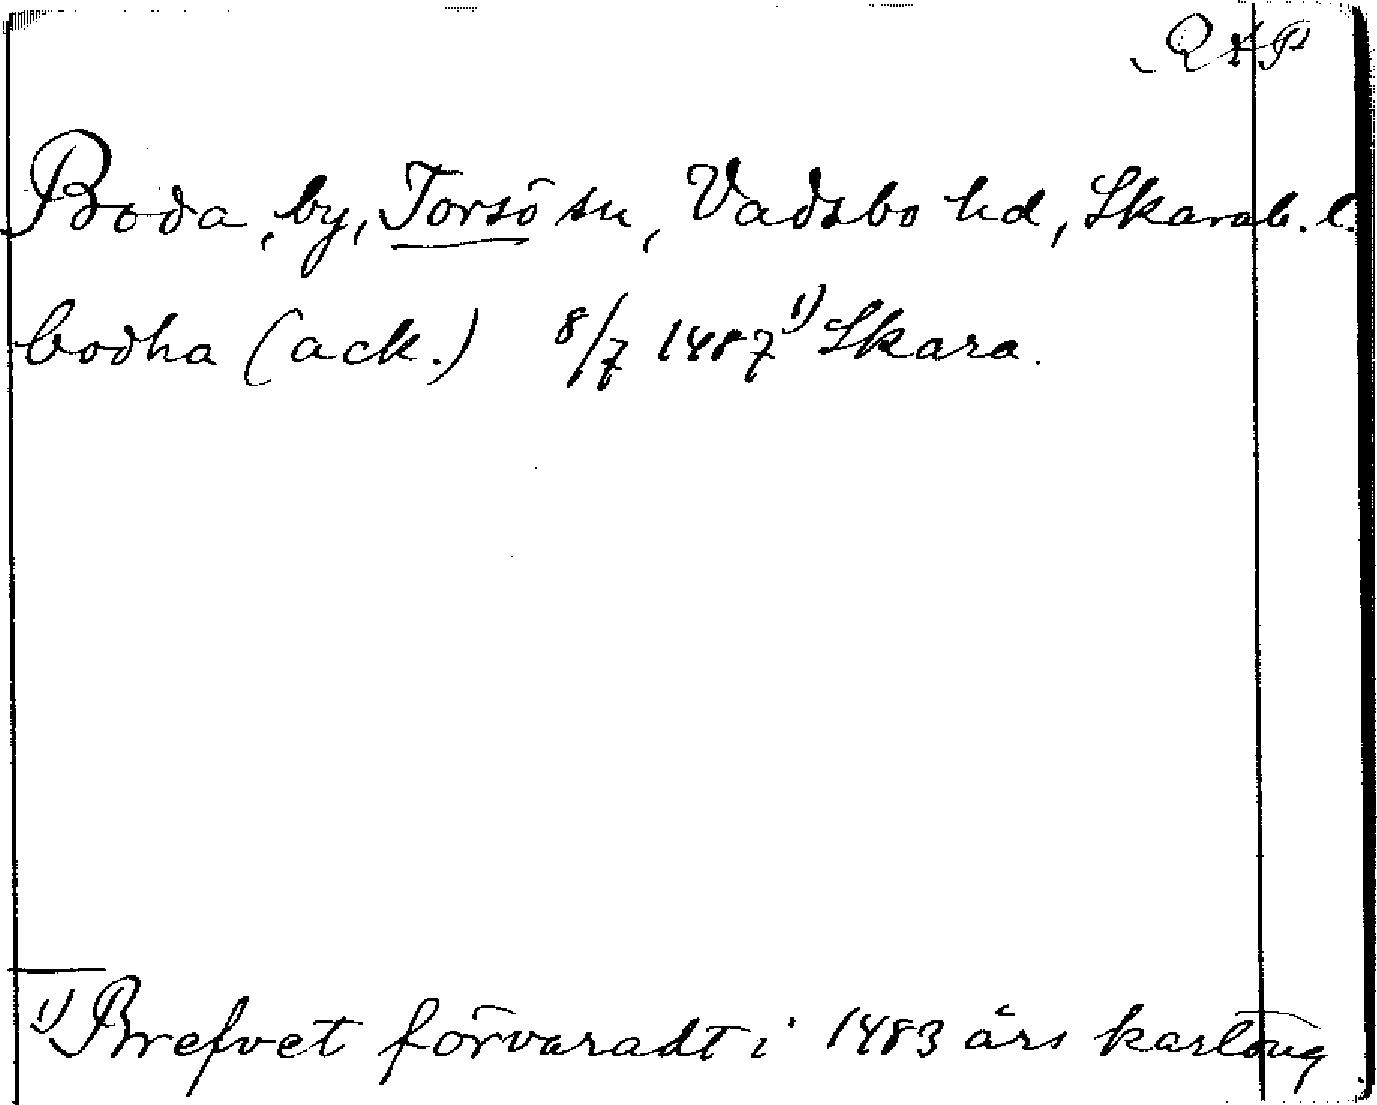 Boda, by, Torsö sn, Vadsbo hd, Skarab. l.
bodha (ack.) 8/7 1487 1) Skara.
1) Brefvet förvaradt i 1483 års kartong